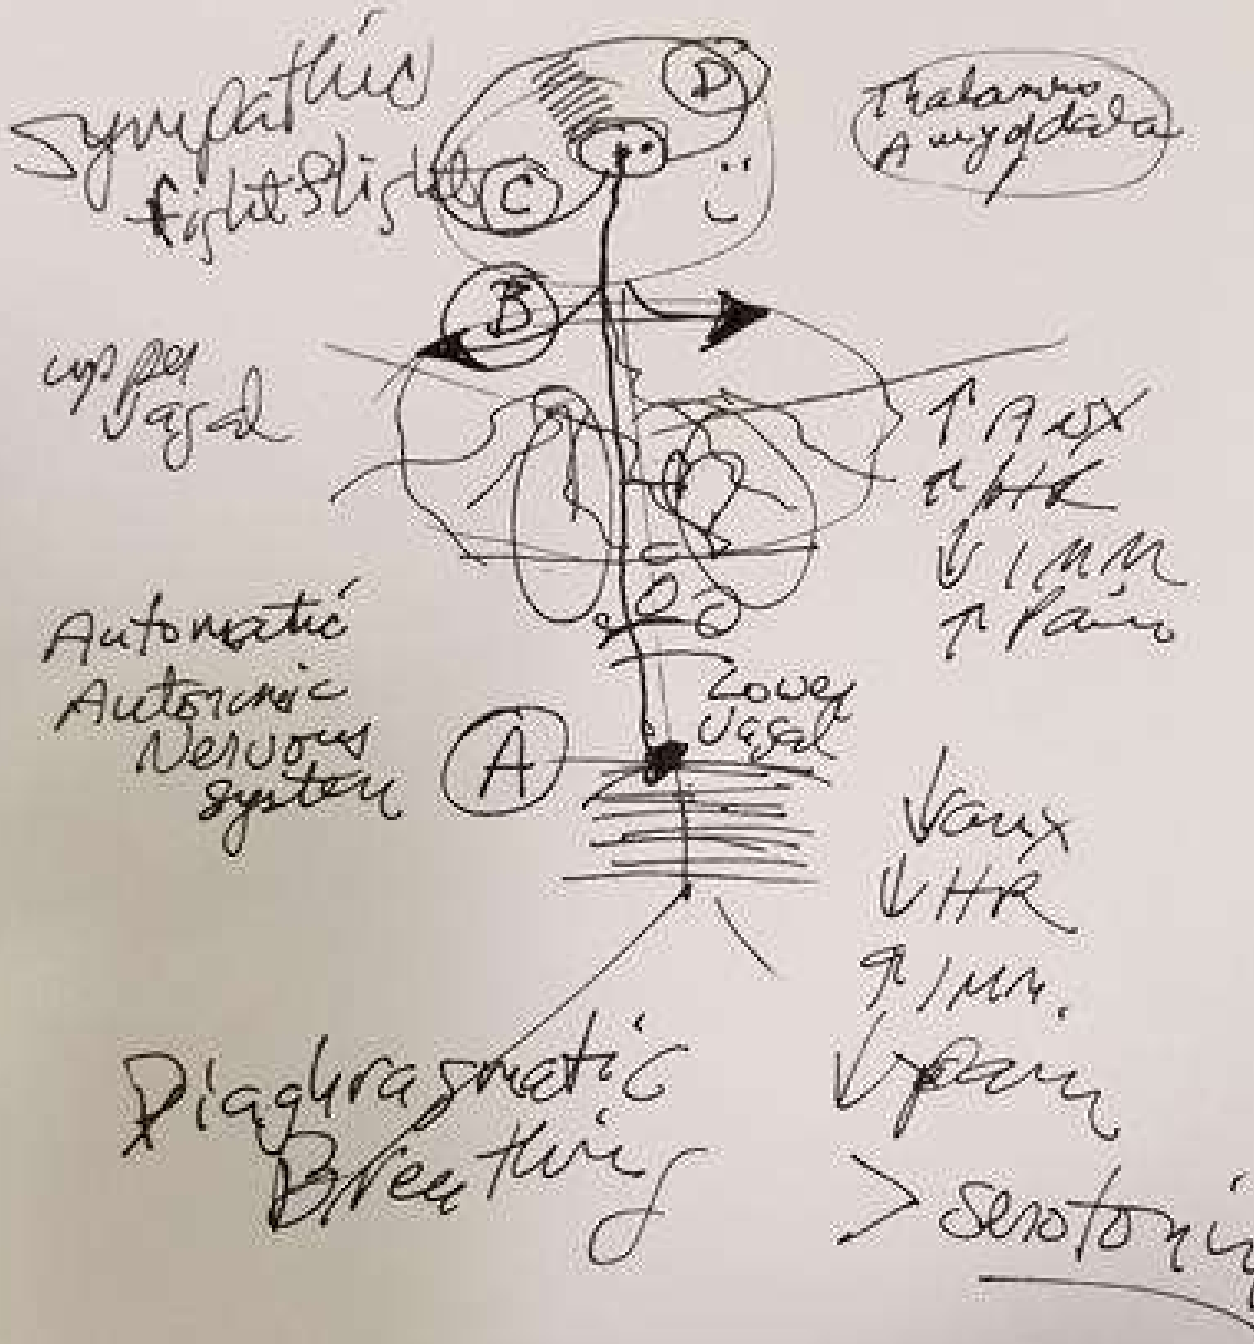 Sympathic
fight flight
C
D
Thalamus
Amygdala
B
upper
vagal
↑ Anx
↑ HR
↓ IMM
↑ Pain
Automatic
Autonomic
Nervous
System
A
Lower
vagal
↓ anx
↓ HR
↑ IMM.
↓ pain
Diaghragmatic
Breathing
> serotonin